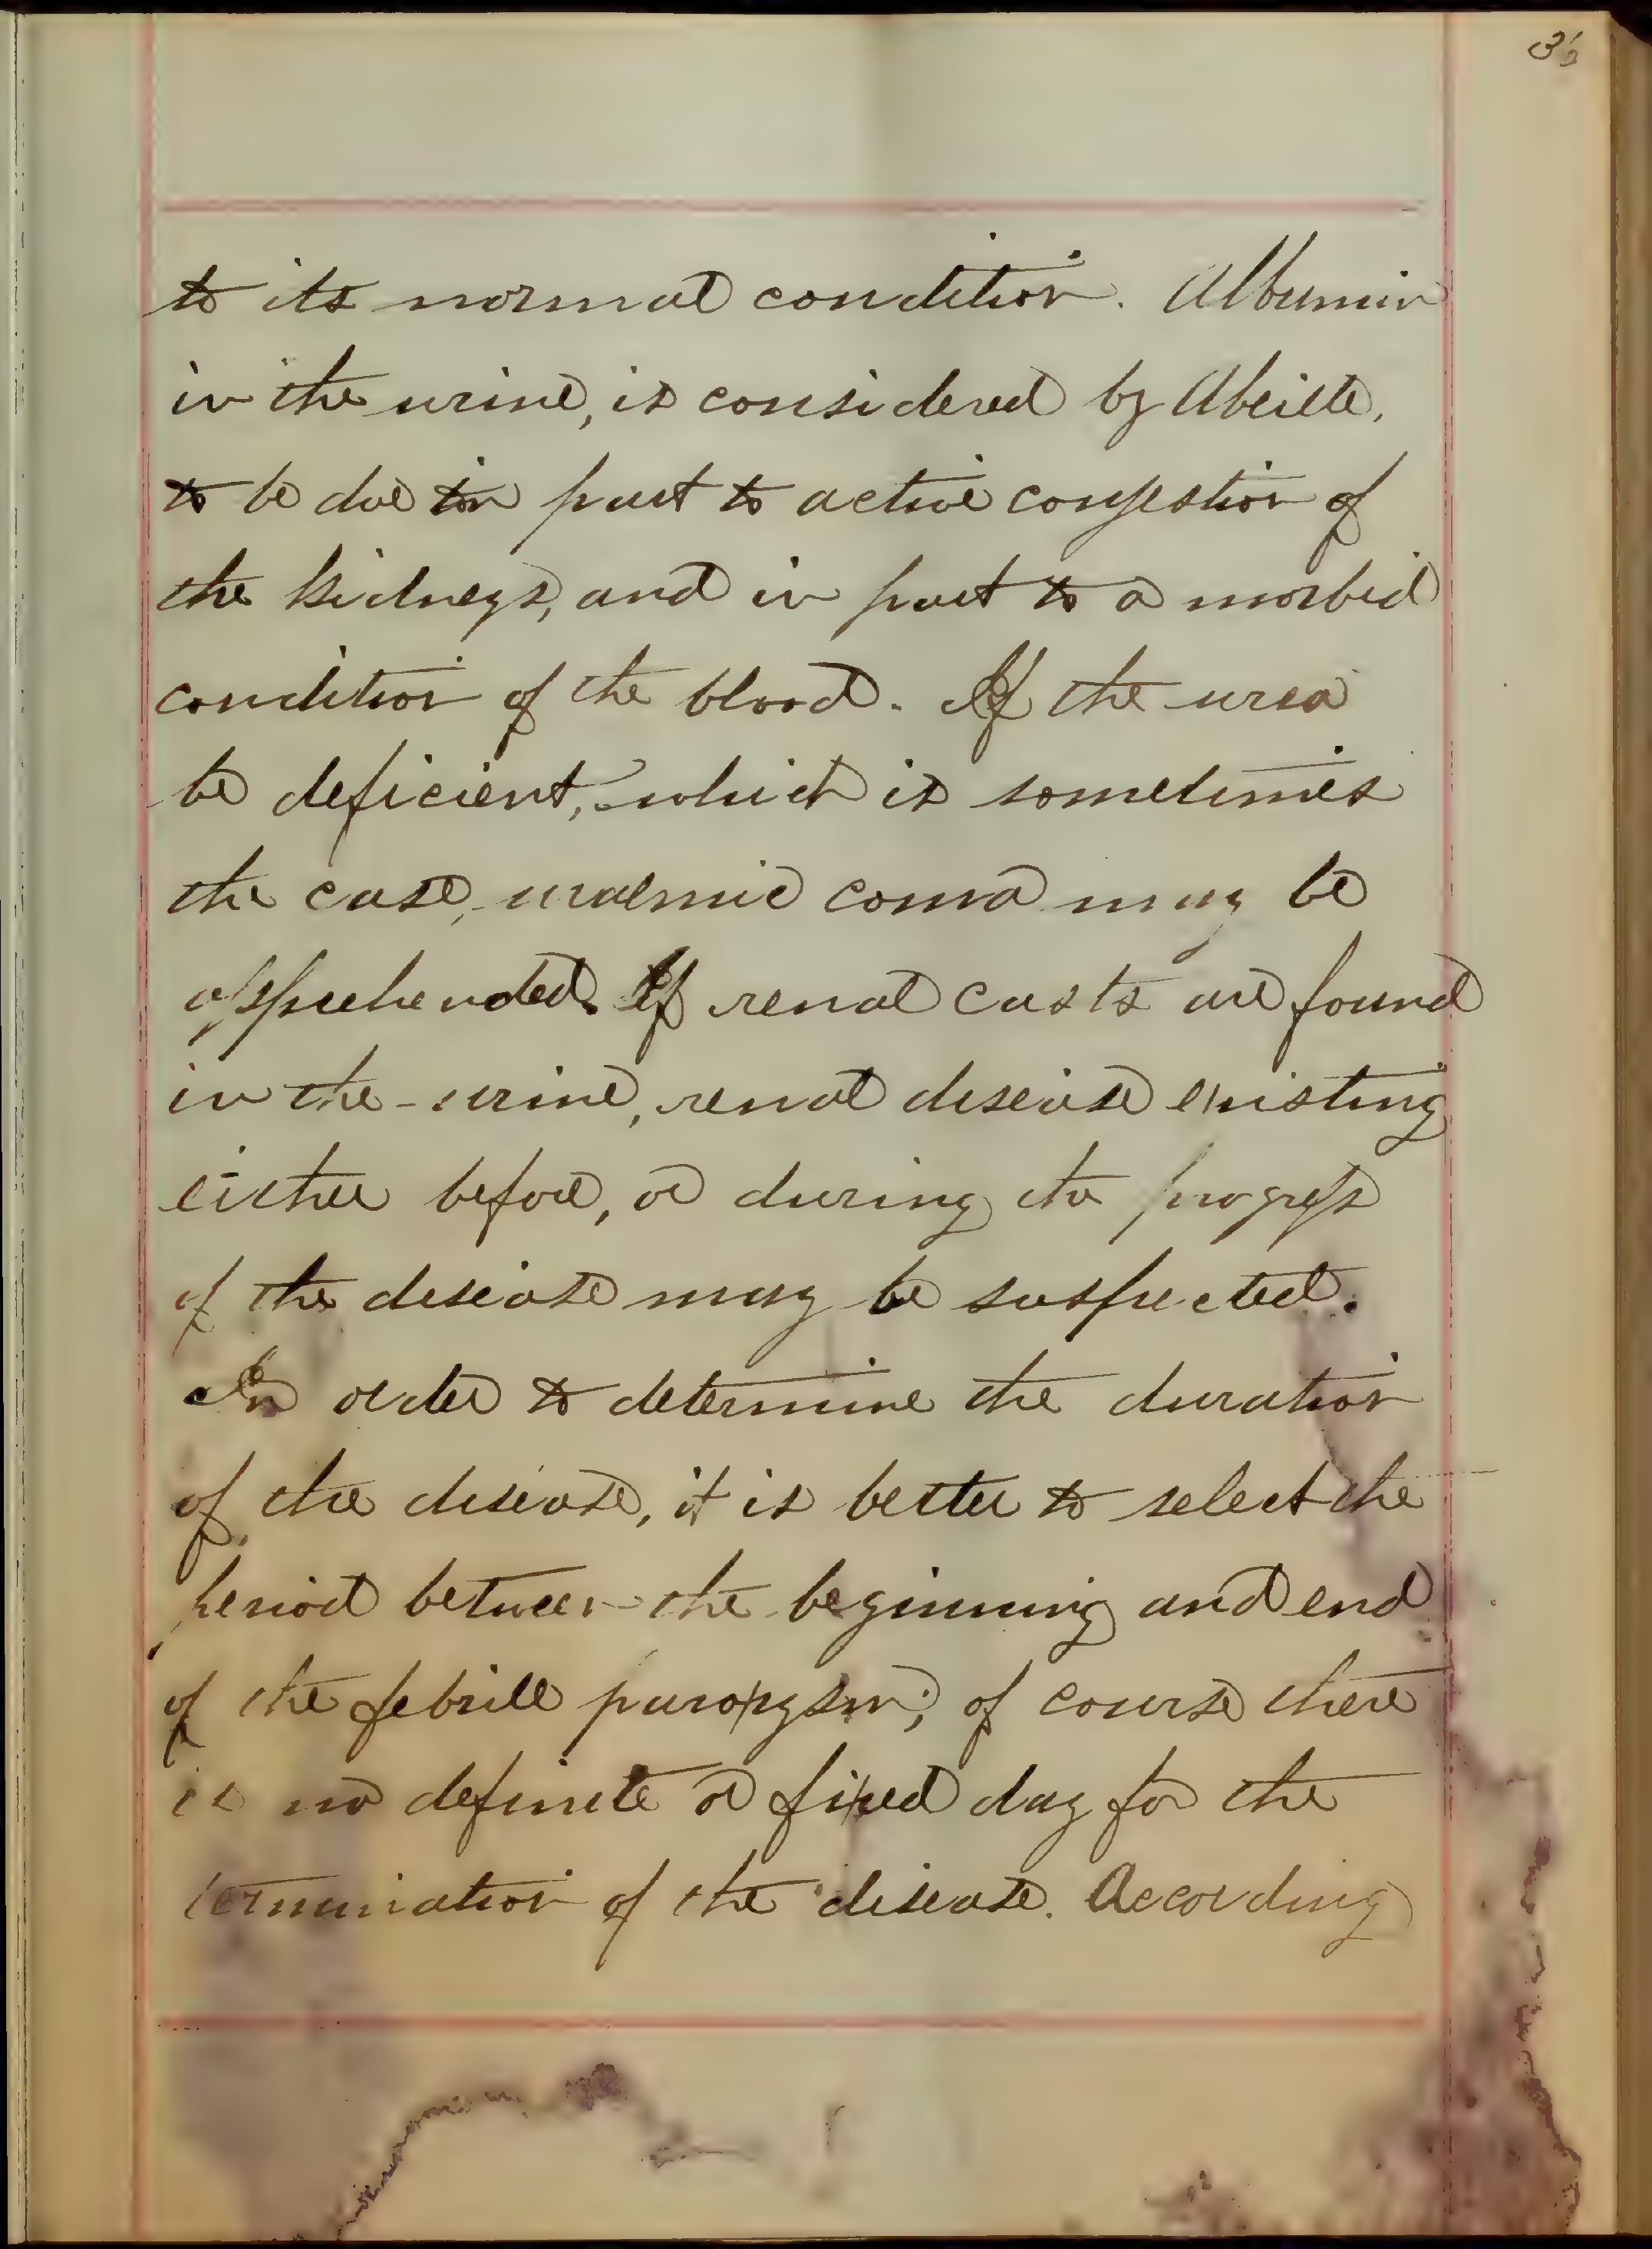 to its normal condition. Albumin
in the urine, is considered by Abeille,
to be due in part to active congestion of
the kidneys, and in part to a morbid
condition of the blood. If the urea
be deficient, which is sometimes
the case, uraemic coma may be
apprehended. If renal casts are found
in the urine, renal disease existing
either before, or during the progress
of the disease may be suspected.
In order to determine the duration
of the disease, it is better to select the
period between the beginning and end
of the febrile paroxysm; of course there
is no definite or fixed day for the
termination of the disease. According